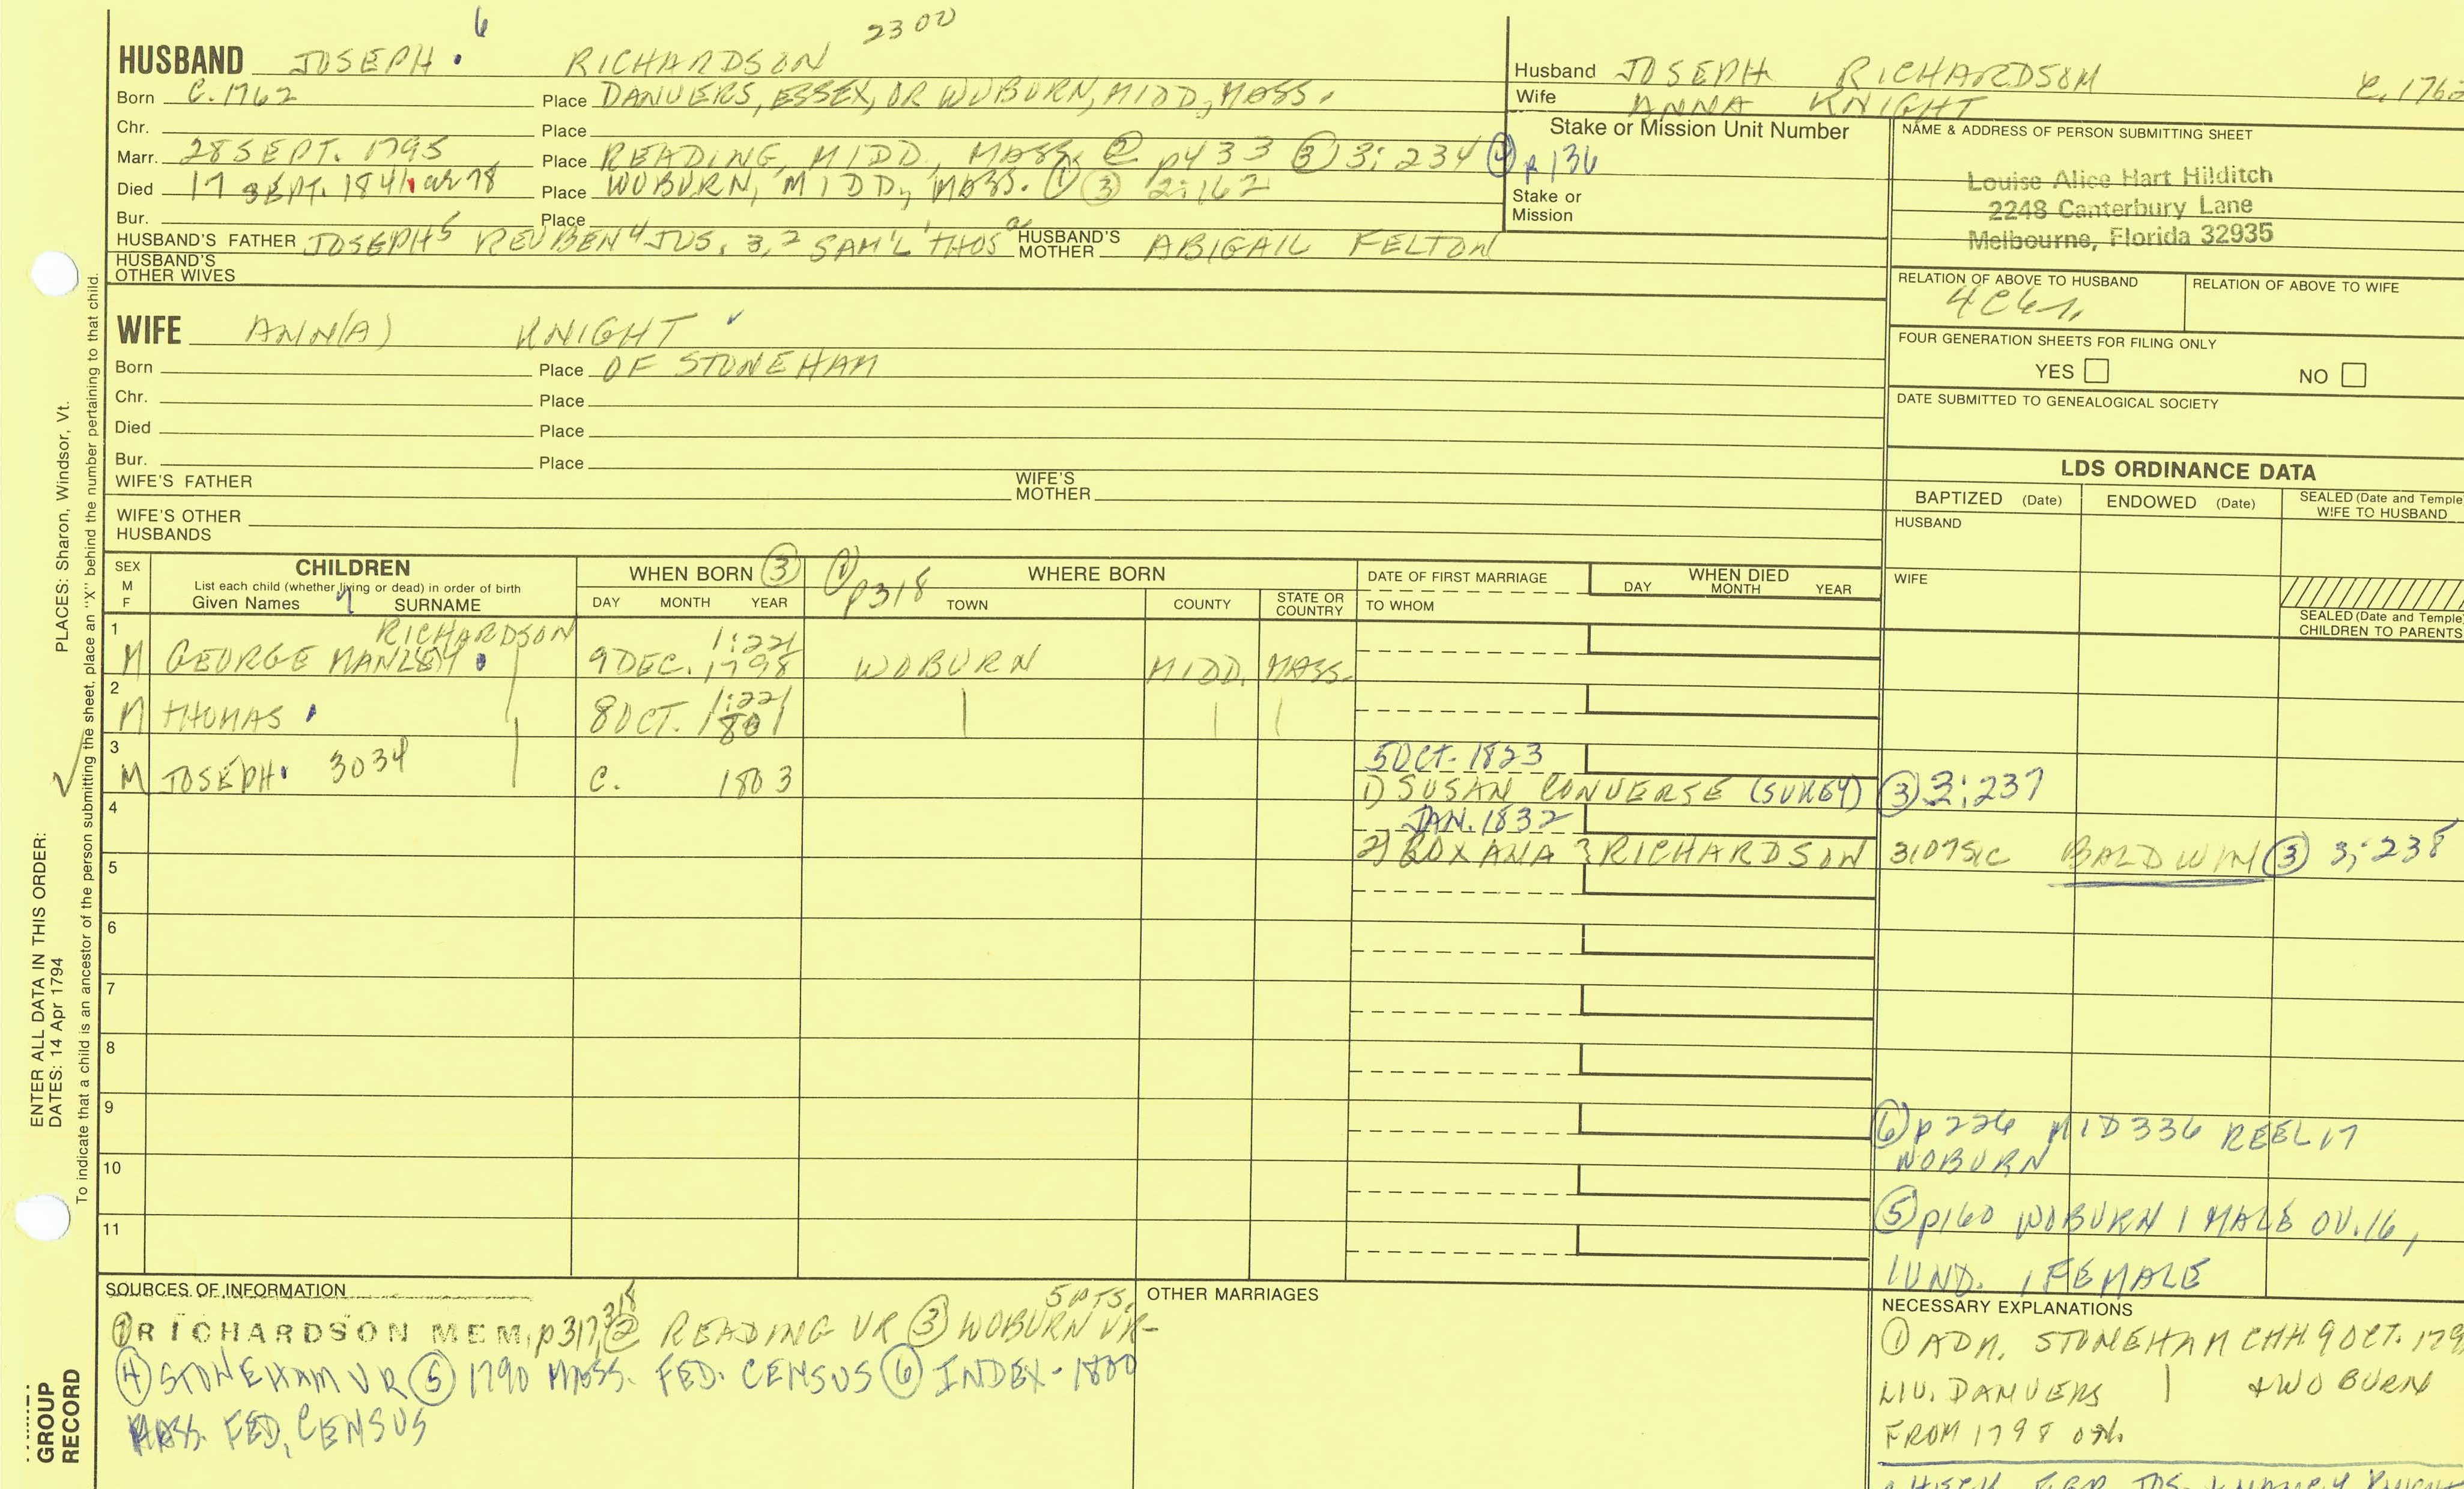 6
2300
HUSBAND JOSEPH. RICHARDSON
Born C. 1762 Place DANVERS, ESSEX, OR WOBURN, MIDD, MASS.
Chr. Place
Marr. 28 SEPT. 1795 Place READING, MIDD, MASS. ② p433 ③ 3:234 ④ p136
Died 17 SEPT. 1841 Place WOBURN, MIDD, MASS. ① ③ 2:162
Bur. Place
HUSBAND'S FATHER JOSEPH5 REUBEN4 JOS. 3,2 SAM'L1 THOSa HUSBAND'S MOTHER ABIGAIL FELTON
HUSBAND'S OTHER WIVES
Husband JOSEPH RICHARDSON C. 1762
Wife ANNA KNIGHT
Stake or Mission Unit Number
Stake or Mission
NAME & ADDRESS OF PERSON SUBMITTING SHEET
Louise Alice Hart Hilditch
2248 Canterbury Lane
Melbourne, Florida 32935
RELATION OF ABOVE TO HUSBAND RELATION OF ABOVE TO WIFE
FOUR GENERATION SHEETS FOR FILING ONLY
YES NO
DATE SUBMITTED TO GENEALOGICAL SOCIETY
WIFE ANN(A) KNIGHT
Born Place OF STONEHAM
Chr. Place
Died Place
Bur. Place
WIFE'S FATHER WIFE'S MOTHER
WIFE'S OTHER HUSBANDS
LDS ORDINANCE DATA
BAPTIZED (Date) ENDOWED (Date) SEALED (Date and Temple) WIFE TO HUSBAND
HUSBAND
WIFE
SEALED (Date and Temple) CHILDREN TO PARENTS
SEX M F
CHILDREN
List each child (whether living or dead) in order of birth
Given Names 7 SURNAME
WHEN BORN ③
DAY MONTH YEAR
① p318
WHERE BORN
TOWN COUNTY STATE OR COUNTRY
DATE OF FIRST MARRIAGE
TO WHOM
WHEN DIED
DAY MONTH YEAR
1 RICHARDSON 1:221
M GEORGE MANLEY. 9 DEC. 1798 WOBURN MIDD. MASS.
2 1:221
M THOMAS 8 OCT. 1801
3 5 OCT. 1823
M JOSEPH. 3034 C. 1803 1) SUSAN CONVERSE (SUKEY) ③ 3:237
4 JAN. 1832
2) ROXANA ? RICHARDSON 3107 SIC BALDWIN ③ 3:238
5
6
7
8
9
10
11
⑥ p226 MID 336 REEL 17
WOBURN
⑤ p160 WOBURN 1 MALE OV. 16,
1 UND. 1 FEMALE
SOURCES OF INFORMATION
① RICHARDSON MEM, p317, 318 ② READING VR ③ WOBURN VR- 5 PTS.
④ STONEHAM VR ⑤ 1790 MASS. FED. CENSUS ⑥ INDEX - 1800
MASS. FED. CENSUS
OTHER MARRIAGES
NECESSARY EXPLANATIONS
① ADM. STONEHAM CHH 9 OCT. 179
LIV. DANVERS + WOBURN
FROM 1798
PLACES: Sharon, Windsor, Vt.
ENTER ALL DATA IN THIS ORDER:
DATES: 14 Apr 1794
To indicate that a child is an ancestor of the person submitting the sheet, place an "X" behind the number pertaining to that child.
GROUP
RECORD